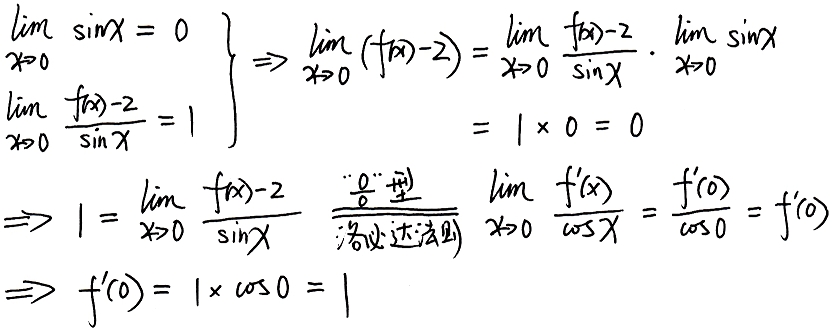 lim_{x→0} sinx = 0
lim_{x→0} \frac{f(x)-2}{sinx} = 1
} ⇒ lim_{x→0} (f(x)-2) = lim_{x→0} \frac{f(x)-2}{sinx} · lim_{x→0} sinx
= 1 × 0 = 0
⇒ 1 = lim_{x→0} \frac{f(x)-2}{sinx} \xlongequal[洛必达法则]{"\frac{0}{0}"型} lim_{x→0} \frac{f'(x)}{cosx} = \frac{f'(0)}{cos0} = f'(0)
⇒ f'(0) = 1 × cos0 = 1